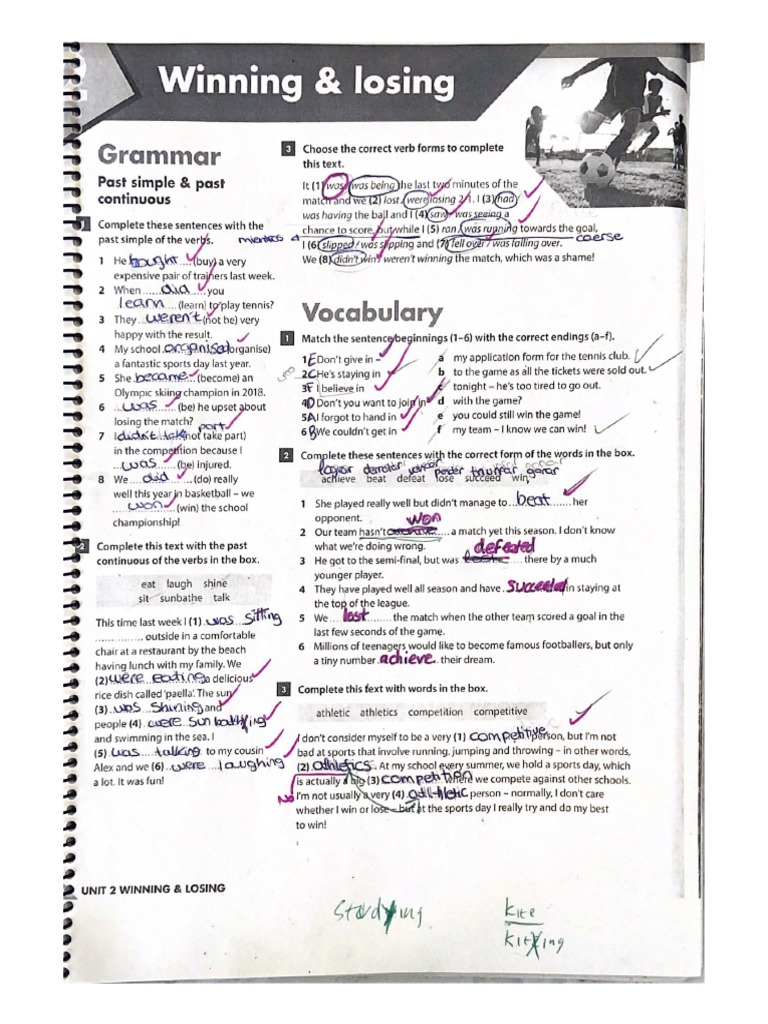 2
Winning & losing
Grammar
Past simple & past
continuous
1 Complete these sentences with the
past simple of the verbs.
1 He bought (buy) a very
expensive pair of trainers last week.
2 When did you
learn (learn) to play tennis?
3 They weren't (not be) very
happy with the result.
4 My school organised (organise)
a fantastic sports day last year.
5 She became (become) an
Olympic skiing champion in 2018.
6 was (be) he upset about
losing the match?
part
7 I didn't take (not take part)
in the competition because I
was (be) injured.
8 We did (do) really
well this year in basketball – we
won (win) the school
championship!
2 Complete this text with the past
continuous of the verbs in the box.
eat laugh shine
sit sunbathe talk
This time last week I (1) was sitting
outside in a comfortable
chair at a restaurant by the beach
having lunch with my family. We
(2) were eating a delicious
rice dish called 'paella'. The sun
(3) was shining and
people (4) were sunbathing
and swimming in the sea. I
(5) was talking to my cousin
Alex and we (6) were laughing
a lot. It was fun!
3 Choose the correct verb forms to complete
this text.
It (1) was / was being the last two minutes of the
match and we (2) lost / were losing 2–1. I (3) had /
was having the ball and I (4) saw / was seeing a
chance to score, but while I (5) ran / was running towards the goal,
mientras
I (6) slipped / was slipping and (7) fell over / was falling over.
caerse
We (8) didn't win / weren't winning the match, which was a shame!
Vocabulary
1 Match the sentence beginnings (1–6) with the correct endings (a–f).
1 E Don't give in –
2 C He's staying in
3 F I believe in
4 D Don't you want to join in
5 A I forgot to hand in
6 B We couldn't get in
a my application form for the tennis club.
b to the game as all the tickets were sold out.
c tonight – he's too tired to go out.
d with the game?
e you could still win the game!
f my team – I know we can win!
2 Complete these sentences with the correct form of the words in the box.
lograr derrotar vencer perder triunfar ganar
achieve beat defeat lose succeed win
1 She played really well but didn't manage to beat her
opponent.
won
2 Our team hasn't a match yet this season. I don't know
what we're doing wrong.
defeated
3 He got to the semi-final, but was there by a much
younger player.
4 They have played well all season and have succeeded in staying at
the top of the league.
5 We lost the match when the other team scored a goal in the
last few seconds of the game.
6 Millions of teenagers would like to become famous footballers, but only
a tiny number achieve their dream.
3 Complete this text with words in the box.
athletic athletics competition competitive
I don't consider myself to be a very (1) competitive person, but I'm not
bad at sports that involve running, jumping and throwing – in other words,
(2) athletics. At my school every summer, we hold a sports day, which
is actually a big (3) competition where we compete against other schools.
No I'm not usually a very (4) athletic person – normally, I don't care
whether I win or lose – but at the sports day I really try and do my best
to win!
UNIT 2 WINNING & LOSING
studying
kite